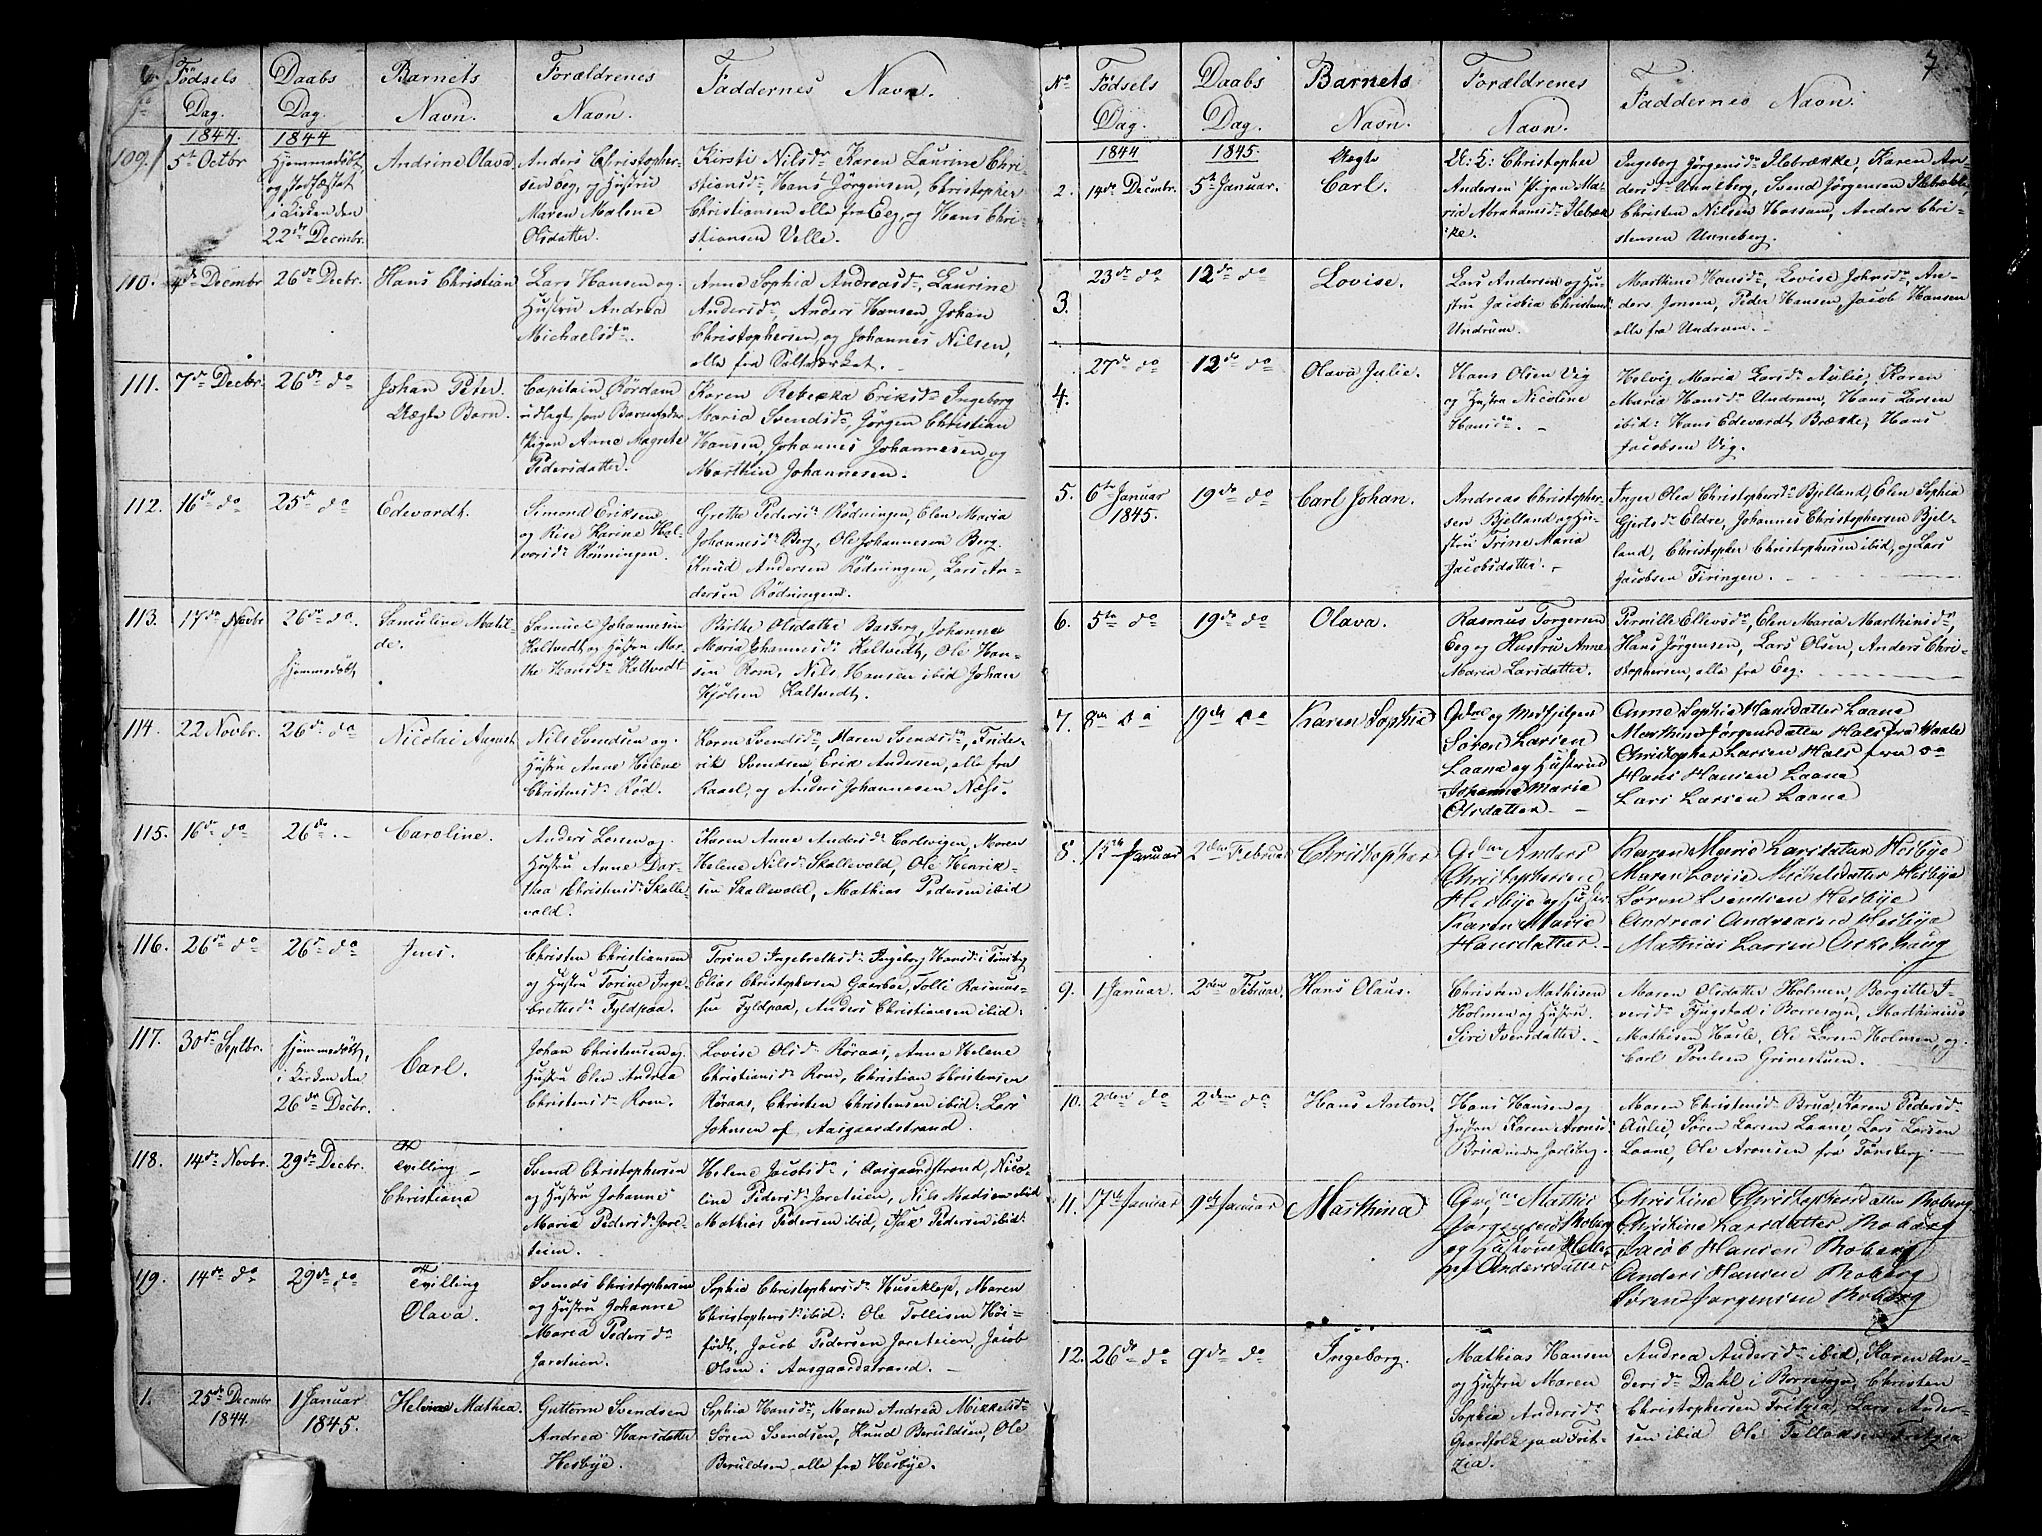 Fødsels Dag.
Daabs Dag.
Barnets Navn.
Forældrenes Navn.
Faddernes Navn.
109.
1844.
5te Octbr
1844
Hjemmedøbt
og stadfæstet
i Kirken den
22de Decmbr.
Andrine Olava
Anders Christopher-
sen Eeg, og Hustru
Maren Malene
Olsdatter.
Kirsti Nilsdr. Karen Laurine Chri-
stiansdr, Hans Jørgensen, Christopher
Christiansen alle fra Eeg, og Hans Chri-
stiansen Velle.
110.
4de Decmbr
26de Decbr.
Hans Christian
Lars Hansen og
Hustru Andrea
Michaelsdr.
Anne Sophia Andreasdr, Laurine
Andersdr, Anders Hansen Johan
Christophersen, og Johannes Nilsen,
alle fra Saltværket.
111.
7de Decbr.
26de do
Johan Peter.
Uægte Barn.
Capitain Rørdam
udlagt som Barnefader
Pigen Anne Magrete
Pedersdatter.
Karen Rebekka Eriksdr Ingeborg
Maria Svendsdr, Jørgen Christian
Hansen, Johannes Johannesen og
Marthin Johannesen.
112.
16de do
25de do
Edevardt.
Simond Eriksen
og Rise Karine Hal-
vorsdr Rønningen.
Grethe Pedersdr Rødningen, Elen Maria
Johannesdr Berg, Ole Johannesen Berg.
Knud Andersen Rødningen, Lars An-
dersen Rødningen.
113.
17de Novbr
26de do.
Hjemmedøbt
Samuline Matil-
de.
Samuel Johannesen
Kaltvedt og Hustru Mar-
the Hansdr Kaltvedt
Birthe Olsdatter Basberg, Johanne
Maria Johannesdr Kaltvedt, Ole Han-
sen Rom, Nils Hansen ibid Johan
Kjølsen Kaltvedt.
114.
22 Novbr.
26de do
Nicolai August
Nils Svendsen og
Hustru Anne Helene
Christensdr Rød.
Karen Svendsdr, Maren Svendsdr, Fride-
rik Svendsen Erik Andersen, alle fra
Raael, og Anders Johannesen Næss.
115.
16de do
26de
Caroline.
Anders Larsen og
Hustru Anne Dor-
thea Christensdr Skalle-
vold.
Karen Anne Andersdr Carlsvigen, Maren
Helene Nilsdr Skallevold, Ole Henrik-
sen Skallevold, Mathias Pedersen ibid
116.
26de do
26de do
Jens.
Christen Christiansen
og Hustru Torine Inge-
bretsdr Fyldpaa.
Torine Ingebretsdr Ingeborg Hansdr i Tønsberg
Elias Christophersen Gaarboe, Tolli Rasmus-
sen Fyldpaa, Anders Christiansen ibid.
117.
30de Septbr.
Hjemmedøbt,
i Kirken den
26de Decbr.
Carl.
Johan Christensen og
Hustru Elen Andrea
Christensdr Rom.
Lovise Olsdr Røraas, Anne Helene
Christiansdr Rom, Christian Christensen
Røraas, Christen Christensen ibid: Lars
Johnsen af Aasgaardstrand.
118.
14de Novbr.
29de Decbr.
Tvilling
Christiana
Svend Christophersen
og Hustru Johanne
Maria Pedersdr Jare-
teien.
Helene Jacobsdr i Aasgaardstrand, Nico-
line Pedersdr Jareteien, Nils Madsen ibid
Mathias Pedersen ibid, Isax Pedersen ibid:
119.
14de do
29de do
Tvilling
Olava.
Svends Christophersen
og Hustru Johanne
Maria Pedersdr
Jareteien.
Sophie Christophersdr Huseklep, Maren
Christophersdr ibid: Ole Tollisen Høi-
født, Jacob Pedersen Jareteien, Jacob
Olsen i Aasgaardstrand.
1.
25de Decmbr
1844.
1 Januar
1845.
Helvine Mathea.
Guttorm Svendsen
Andrea Hansdatter
Hesbye.
Sophia Hansdr, Maren Andrea Mikkelsdr
Søren Svendsen, Knud Beruldsen, Ole
Beruldsen alle fra Hesbye.
7
No
Fødsels Dag.
Daabs Dag.
Barnets Navn.
Forældrenes Navn.
Faddernes Navn.
2.
1844
14de Decmbr.
1845.
5te Januar.
Uægte
Carl.
U: K: Christopher
Andersen Pigen Ma-
rie Abrahamsdr Ilebræk-
ke.
Ingeborg Jørgensdr Ilebrække, Karen An-
dersdr Unneberg, Svend Jørgensen Ilebrække
Christen Nilsen Hassum, Anders Chri-
stensen Unneberg.
3.
23de do
12de do
Lovise.
Lars Andersen og Hu-
stru Jacobia Christensdr
Undrum.
Marthine Hansdr, Lovise Johnsdr, An-
ders Jonsen, Peder Hansen, Jacob Hansen
alle fra Undrum.
4.
27de do
12de do
Olava Julie.
Hans Olsen Vig
og Hustru Nicoline
Hansdr.
Helvig Maria Larsdr Aulie, Karen
Maria Hansdr Undrum, Hans Larsen
ibid: Hans Edevardt Brække, Hans
Jacobsen Vig.
5.
6te Januar
1845.
19de do
Carl Johan.
Andreas Christopher-
sen Bjelland og Hu-
stru Trine Maria
Jacobsdatter.
Inger Olea Christophersdr Bjelland, Elen Sophia
Gjertsdr Eldre, Johannes Christophersen Bjel-
land, Christopher Christophersen ibid, og Lars
Jacobsen Firingen.
6.
5te do
19de do
Olava.
Rasmus Torgersen
Eeg og Hustru Anne
Maria Larsdatter.
Pernille Ellevsdr, Elen Maria Marthinsdr,
Hans Jørgensen, Lars Olsen, Anders Chri-
stophersen, alle fra Eeg.
7.
8de do
19de do
Karen Sophie
Gdm og Medhjelper
Søren Larsen
Laane og Husterue
Johanne Maria
Olsdatter
Anne Sophie Hansdatter Laane
Marthine Jørgensdatter Hals fra Vaale
Christopher Larsen Hals fra do
Hans Hansen Laane
Lars Larsen Laane
8.
15de Januar
2den Februar
Christopher
Gdm Anders
Christophersen
Hesbye og Hustru
Karen Marie
Hansdatter.
Karen Marie Larsdatter Hesbye
Maren Lovise Michelsdatter Hesbye
Søren Svendsen Hesbye
Andreas Andreasen Hesbye
Mathias Larsen Askehaug
9.
1 Januar.
2den Februar.
Hans Olaus.
Christen Mathisen
Holmen og Hustru
Siri Iversdatter.
Maren Olsdatter Holmen, Borgitte I-
versdr Fyngstad i Borresogn, Marthinius
Mathisen Hasle, Ole Larsen Holmen, og
Carl Poulsen Grinestuen.
10.
2den do
2den do
Hans Anton.
Hans Hansen og
Hustru Karen Aronsdr
Brua under Jarlsberg.
Maren Christensdr Brua, Karen Pedersdr
Aulie, Søren Larsen Laane, Lars Larsen
Laane, Ole Aronsen fra Tønsberg.
11.
17de Januar
9de Januar
Marthina
Mathis
Jørgensen Roberg
og Hustrue Helle-
ne Andersdatter
Christine Christophersdatter Roberg
Christine Larsdatter Roberg
Jacob Hansen Roberg
Anders Hansen Roberg
Søren Jørgensen Roberg
12.
26de do
9de do
Ingeborg.
Mathias Hansen
og Hustru Maren
Sophia Andersdr
Gaardfolk paa Frit-
zia.
Andrea Andersdr ibid, Karen An-
dersdr Dahl i Borresogn, Christen
Christophersen Fritzia, Lars Ander-
sen ibid Ole Fritzia